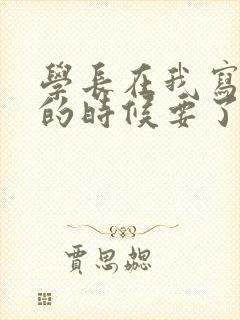 學長在我寫
的時候要了
賈思媤